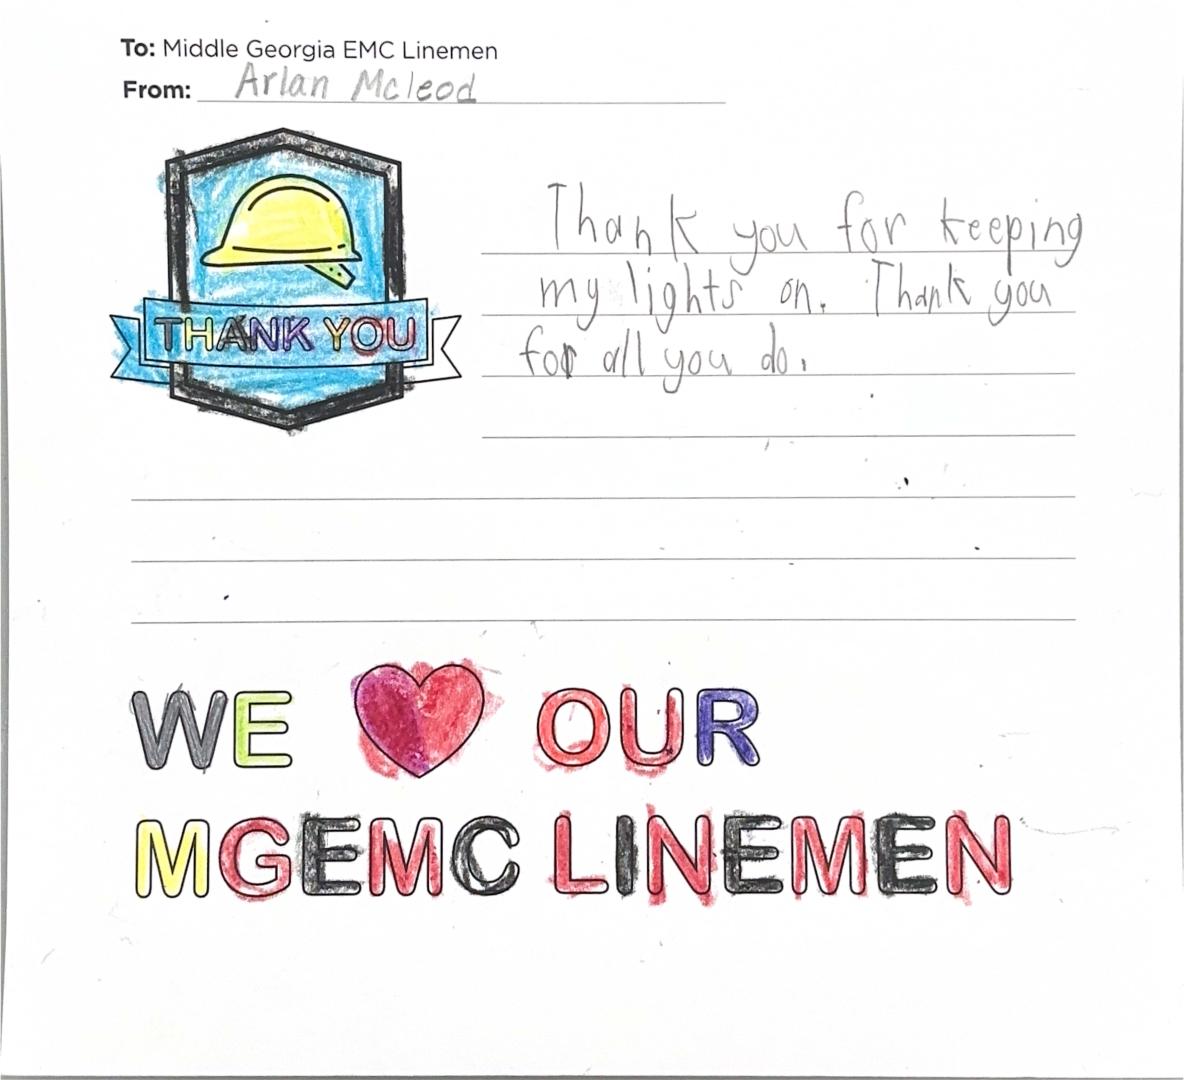 To: Middle Georgia EMC Linemen
From: Arlan Mcleod
THANK YOU
Thank you for keeping
my lights on. Thank you
for all you do.
WE ❤ OUR
MGEMC LINEMEN